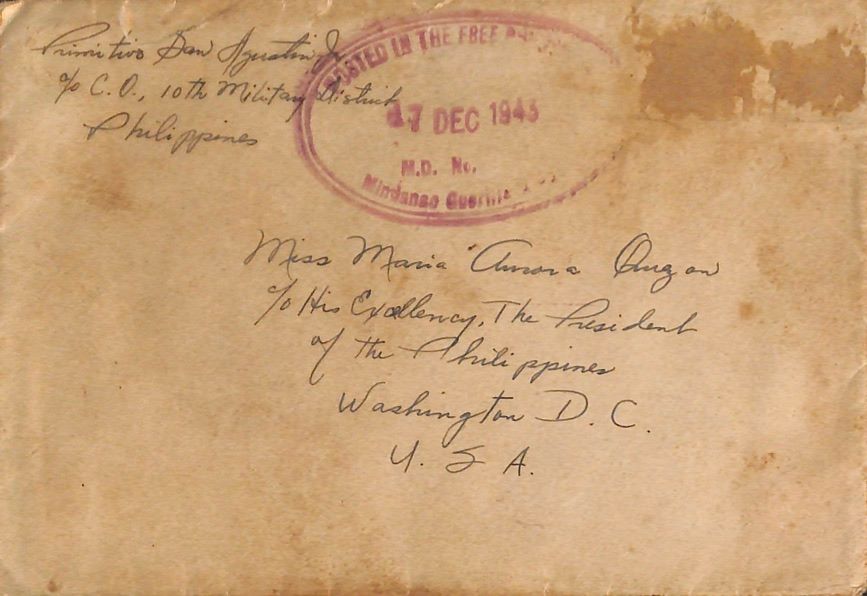 Primitivo San Agustin Jr.
c/o C.O., 10th Military District
Philippines
POSTED IN THE FREE
17 DEC 1943
M.D. No.
Mindanao Guerrilla
Miss Maria Aurora Quezon
c/o His Excellency, The President
of the Philippines
Washington D.C.
U.S.A.